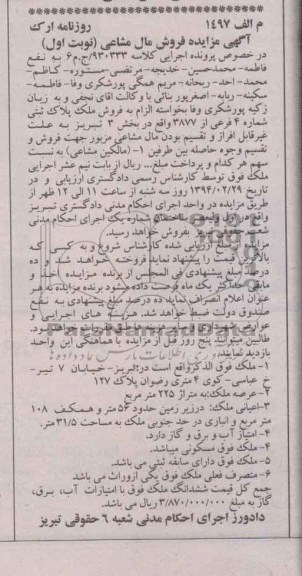 م الف ۱۴۹۷ روزنامه ارک
آگهی مزایده فروش مال مشاعی (نوبت اول)
در خصوص پرونده اجرایی کلاسه ۹۳۰۳۳۳/ج/۶ به نفع
فاطمه- محمدحسین- خدیجه- مرتضی- مستوره- کاظم-
محمد- احد- ریحانه- مریم همگی پورشکری وفا- فاطمه-
سکینه- ربابه- اصغرپور بنائی با وکالت آقای نجفی و به زیان
زکیه پورشکری وفا بخواسته الزام به فروش ملک پلاک ثبتی
شماره ۴ فرعی از ۳۸۷۷ واقع در بخش ۳ تبریز به علت
غیرقابل افراز و تقسیم بودن مال مشاعی مزبور جهت فروش و
تقسیم وجوه حاصله بین طرفین ۱- (مالکین مشاعی) به نسبت
سهم هر کدام و پرداخت مبلغ... ریال از بابت نیم عشر اجرایی
ملک فوق توسط کارشناس رسمی دادگستری ارزیابی و در
تاریخ ۱۳۹۴/۰۲/۲۹ روز سه شنبه از ساعت ۱۱ الی ۱۲ ظهر از
طریق مزایده در واحد اجرای احکام مدنی دادگستری تبریز
واقع در ساختمان شماره یک اجرای احکام مدنی
شعبه بفروش خواهد رسید.
مزایده از مبلغ ارزیابی شده کارشناس شروع و به کسی که
بالاترین قیمت را پیشنهاد نماید فروخته خواهد شد و ده
درصد مبلغ پیشنهادی فی المجلس از برنده مزایده اخذ و
مابقی حداکثر یک ماه فرصت داده میشود برنده مزایده به هر
عنوان اعلام انصراف نماید ده درصد مبلغ پیشنهادی به نفع
صندوق دولت ضبط خواهد شد. هزینه های اجرایی و
طالبین میتوانند پنج روز قبل از مزایده با هماهنگی این واحد
بازدید نمایند
۱- ملک فوق الذکر واقع است در: تبریز- خیابان ۷ تیر-
خ عباسی- کوی ۴ متری رضوان پلاک ۱۲۷
۲- عرصه ملک: به متراژ ۲۲۵ متر مربع
۳- اعیانی ملک: درزیر زمین حدود ۵۶ متر و همکف ۱۰۸
متر مربع و انباری در حد جنوبی ملک به مساحت ۳۱/۵ متر.
۴- امتیاز آب و برق و گاز دارد.
۴- ملک فوق مسکونی میباشد.
۵- ملک فوق دارای سابقه ثبتی می باشد.
۶- متصرف فعلی ملک فوق یکی ازوراث می باشد
جمع کل قیمت ششدانگ ملک فوق با امتیازات آب، برق،
گاز به مبلغ ۳/۸۷۰/۰۰۰/۰۰۰ ریال می باشد.
دادورز اجرای احکام مدنی شعبه ۶ حقوقی تبریز